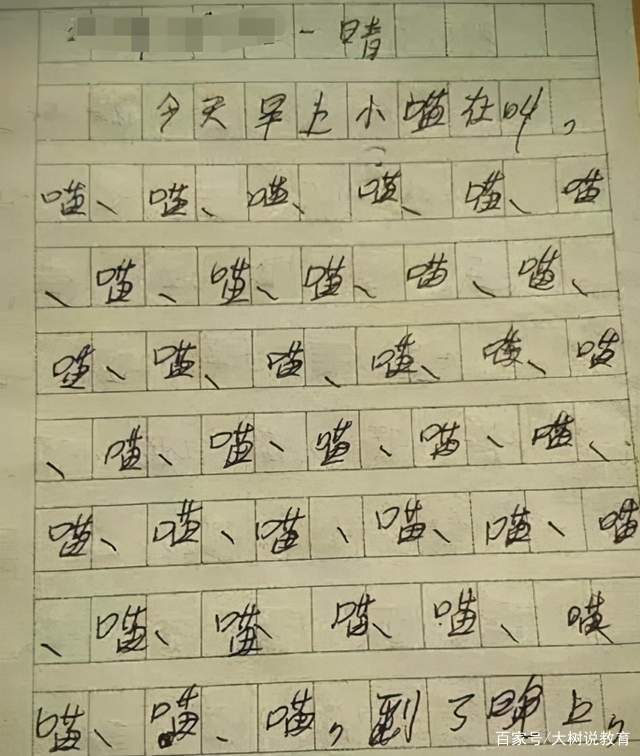 一 晴
今天早上小喵在叫，
喵、喵、喵、喵、喵、喵
、喵、喵、喵、喵、喵、
喵、喵、喵、喵、喵、喵
、喵、喵、喵、喵、喵、
喵、喵、喵、喵、喵、喵
、喵、喵、喵、喵、喵
喵、喵、喵，到了晚上，
百家号/大树说教育